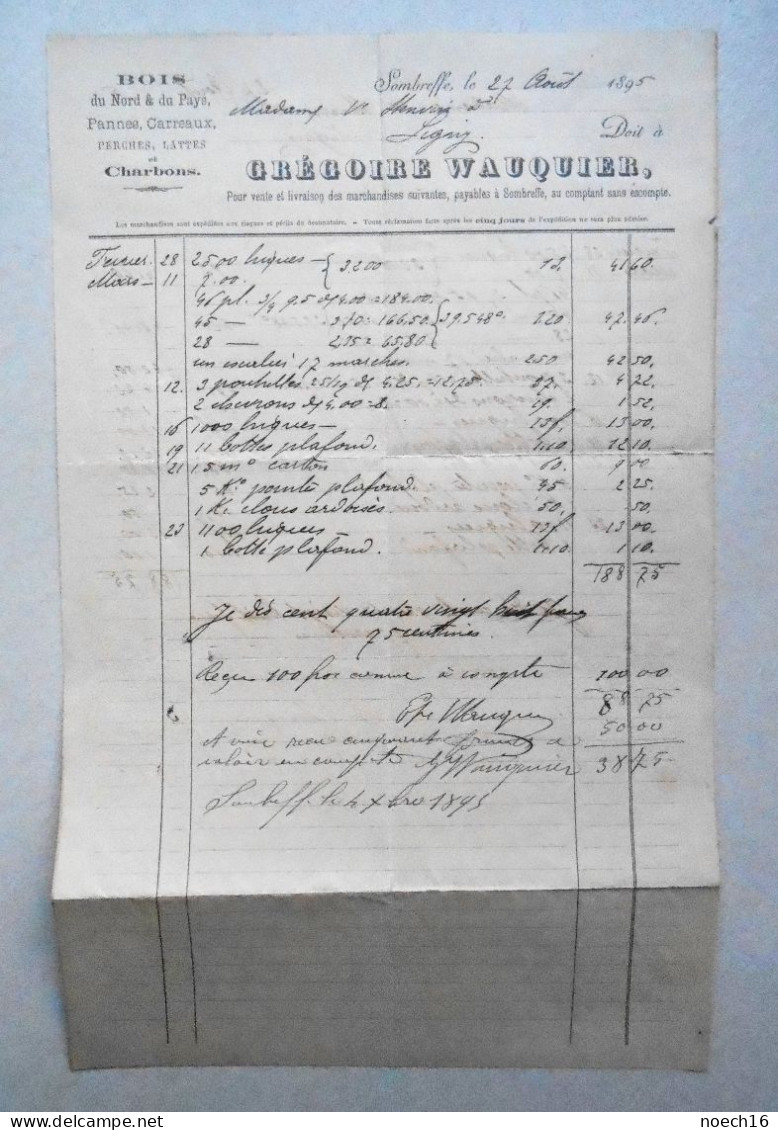 BOIS
du Nord & du Pays,
Pannes, Carreaux,
PERCHES, LATTES
et
Charbons.
Sombreffe, le 27 Août 1895
Madame Vve
Ligny. Doit à
GRÉGOIRE WAUQUIER,
Pour vente et livraison des marchandises suivantes, payables à Sombreffe, au comptant sans escompte.
Les marchandises sont expédiées aux risques et périls du destinataire. - Toute réclamation faite après les cinq jours de l'expédition ne sera plus admise.
28 2500 briques - 3200 13. 41 60.
Mars - 11 7.00.
46 pl. 3/4 9.5 de 4.00 = 184.00.
45 — 3.70 = 166.50. 220 47.46.
28 — 2.35 = 65.80
un escalier 17 marches. 250 42 50.
12. 3 25/19 de 4.25. = 12.75. 37. 4 72.
2 chevrons de 4.00 = 8. 19. 1 52.
16 1000 briques — 13f. 13 00.
19 11 bottes plafond. 1.10. 12 10.
21 15 mº carton 60. 9 00
5 Kº pointe plafond. 45 2 25.
1 K. clous ardoises 50, 50.
23 1100 briques 13f. 13 00.
1 botte plafond. 1.10. 1 10.
188 75
Je dis cent quatre vingt huit
75 centimes.
Reçu 100 frs comme à compte 100 00
88 75
50 00
reçu cinquante francs à
valoir en compte Wauquier 38 75
Sombreffe le 4 Xbre 1895
noech16